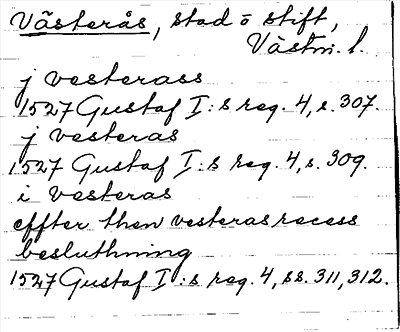 Västerås, stad o stift,
Västm. l.
j vesterass
1527 Gustaf I:s reg. 4, s. 307.
j vesteras
1527 Gustaf I:s reg. 4, s. 309.
i vesteras
effter then vesteras recess
besluthning
1527 Gustaf I:s reg. 4, ss. 311, 312.